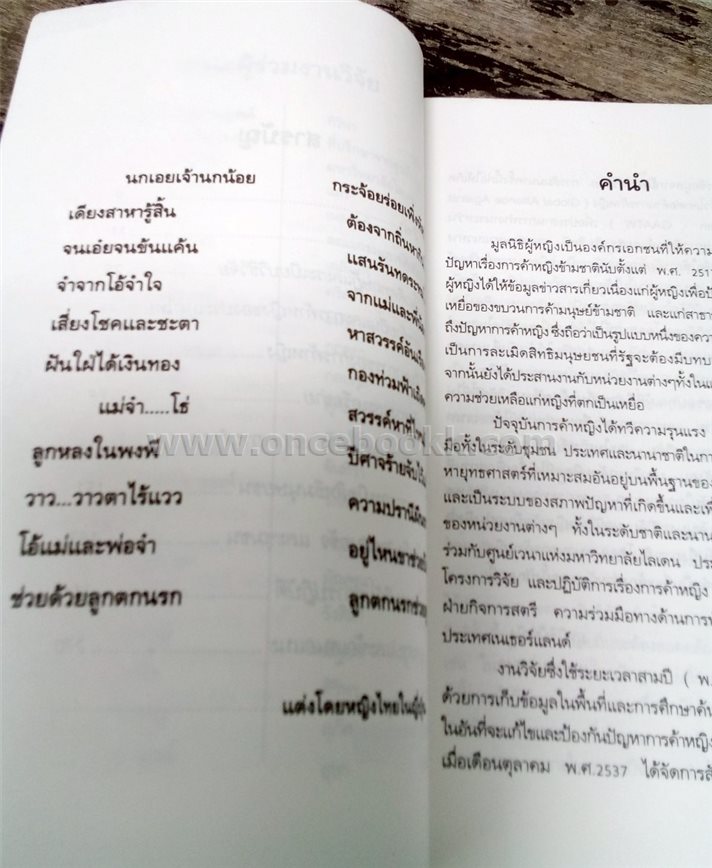 นกเอยเจ้านกน้อย กระจ้อยร่อยเพิ่ง
เดียงสาหารู้สิ้น ต้องจากถิ่นหา
จนเอ๋ยจนขันแค้น แสนรันทด
จำจากโอ้จำใจ จากแม่และพี่
เสี่ยงโชคและชะตา หาสวรรค์อัน
ฝันใฝ่ได้เงินทอง กองท่วมฟ้า
แม่จ๋า.....โธ่ สวรรค์หาที่
ลูกหลงในพงพี ปีศาจร้ายจับ
วาว...วาวตาไร้แวว ความปรานี
โอ้แม่และพ่อจ๋า อยู่ไหนขาช่วย
ช่วยด้วยลูกตกนรก ลูกตกนรกช่วย
แต่งโดยหญิงไทยในญี่ปุ่น
www.oncebook
คำนำ
มูลนิธิผู้หญิงเป็นองค์กรเอกชนที่ให้ความ
ปัญหาเรื่องการค้าหญิงข้ามชาตินับตั้งแต่ พ.ศ.
ผู้หญิงได้ให้ข้อมูลข่าวสารเกี่ยวเนื่องแก่ผู้หญิงเพื่อ
เหยื่อของขบวนการค้ามนุษย์ข้ามชาติ และแก่
ถึงปัญหาการค้าหญิง ซึ่งถือว่าเป็นรูปแบบหนึ่งของ
เป็นการละเมิดสิทธิมนุษยชนที่รัฐจะต้องมี
จากนั้นยังได้ประสานงานกับหน่วยงานต่างๆทั้งใน
ความช่วยเหลือแก่หญิงที่ตกเป็นเหยื่อ
ปัจจุบันการค้าหญิงได้ทวีความรุนแรง
มือทั้งในระดับชุมชน ประเทศและนานาชาติใน
หายุทธศาสตร์ที่เหมาะสมอันอยู่บนพื้นฐานของ
และเป็นระบบของสภาพปัญหาที่เกิดขึ้นและ
ของหน่วยงานต่างๆ ทั้งในระดับชาติและ
ร่วมกับศูนย์เวนาแห่งมหาวิทยาลัยไลเดน
โครงการวิจัย และปฏิบัติการเรื่องการค้าหญิง
ฝ่ายกิจการสตรี ความร่วมมือทางด้านการ
ประเทศเนเธอร์แลนด์
งานวิจัยซึ่งใช้ระยะเวลาสามปี ( พ.
ด้วยการเก็บข้อมูลในพื้นที่และการศึกษา
ในอันที่จะแก้ไขและป้องกันปัญหาการค้าหญิง
เมื่อเดือนตุลาคม พ.ศ.2537 ได้จัดการ